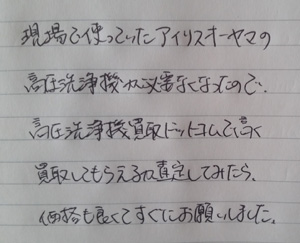 現場で使っていたアイリスオーヤマの
高圧洗浄機が必要なくなったので、
高圧洗浄機買取ドットコムで高く
買取してもらえるか査定してみたら、
価格も良くてすぐにお願いしました。